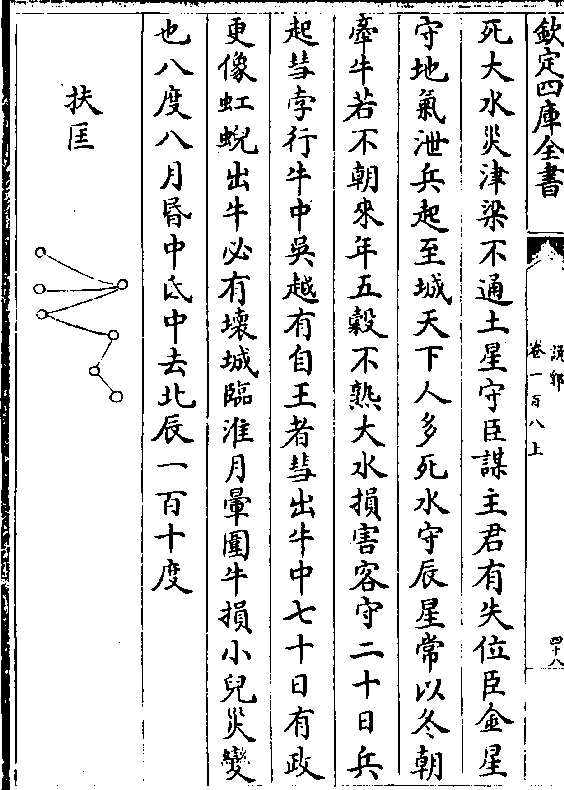 欽定四庫全書
說郛
卷一百八上
四十八
死大水災津梁不通土星守臣謀主君有失位臣金星
守地氣泄兵起至城天下人多死水守辰星常以冬朝
牽牛若不朝來年五穀不熟大水損害客守二十日兵
起彗孛行牛中吳越有自王者彗出牛中七十日有政
更像虹蜺出牛必有壞城臨淮月暈圍牛損小兒災變
也八度八月昏中氐中去北辰一百十度
扶匡